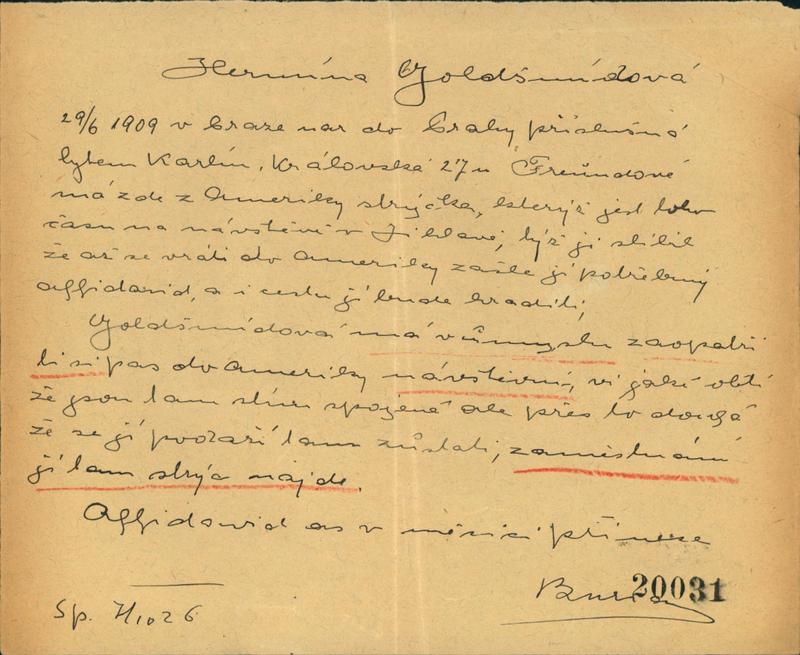 Hermína Goldšmídová
29/6 1909 v Praze nar do Prahy příslušná
bytem Karlín, Královská 27 u Freundové
má zde z Ameriky strýčka, kterýž jest toho
času na návštěvě v Jihlavě, týž jí slíbil
že až se vrátí do Ameriky zašle jí potřebný
affidavid, a i cestu jí bude hraditi,
Goldšmídová má v úmyslu zaopatři
ti si pas do Ameriky návštěvní, ví jaké obtí
že jsou tam s tím spojené ale přes to doufá
že se jí podaří tam zůstati, zaměstnání
jí tam strýc najde.
Affidavid as v měsíci přinese
Sp. 7/10 26
20031